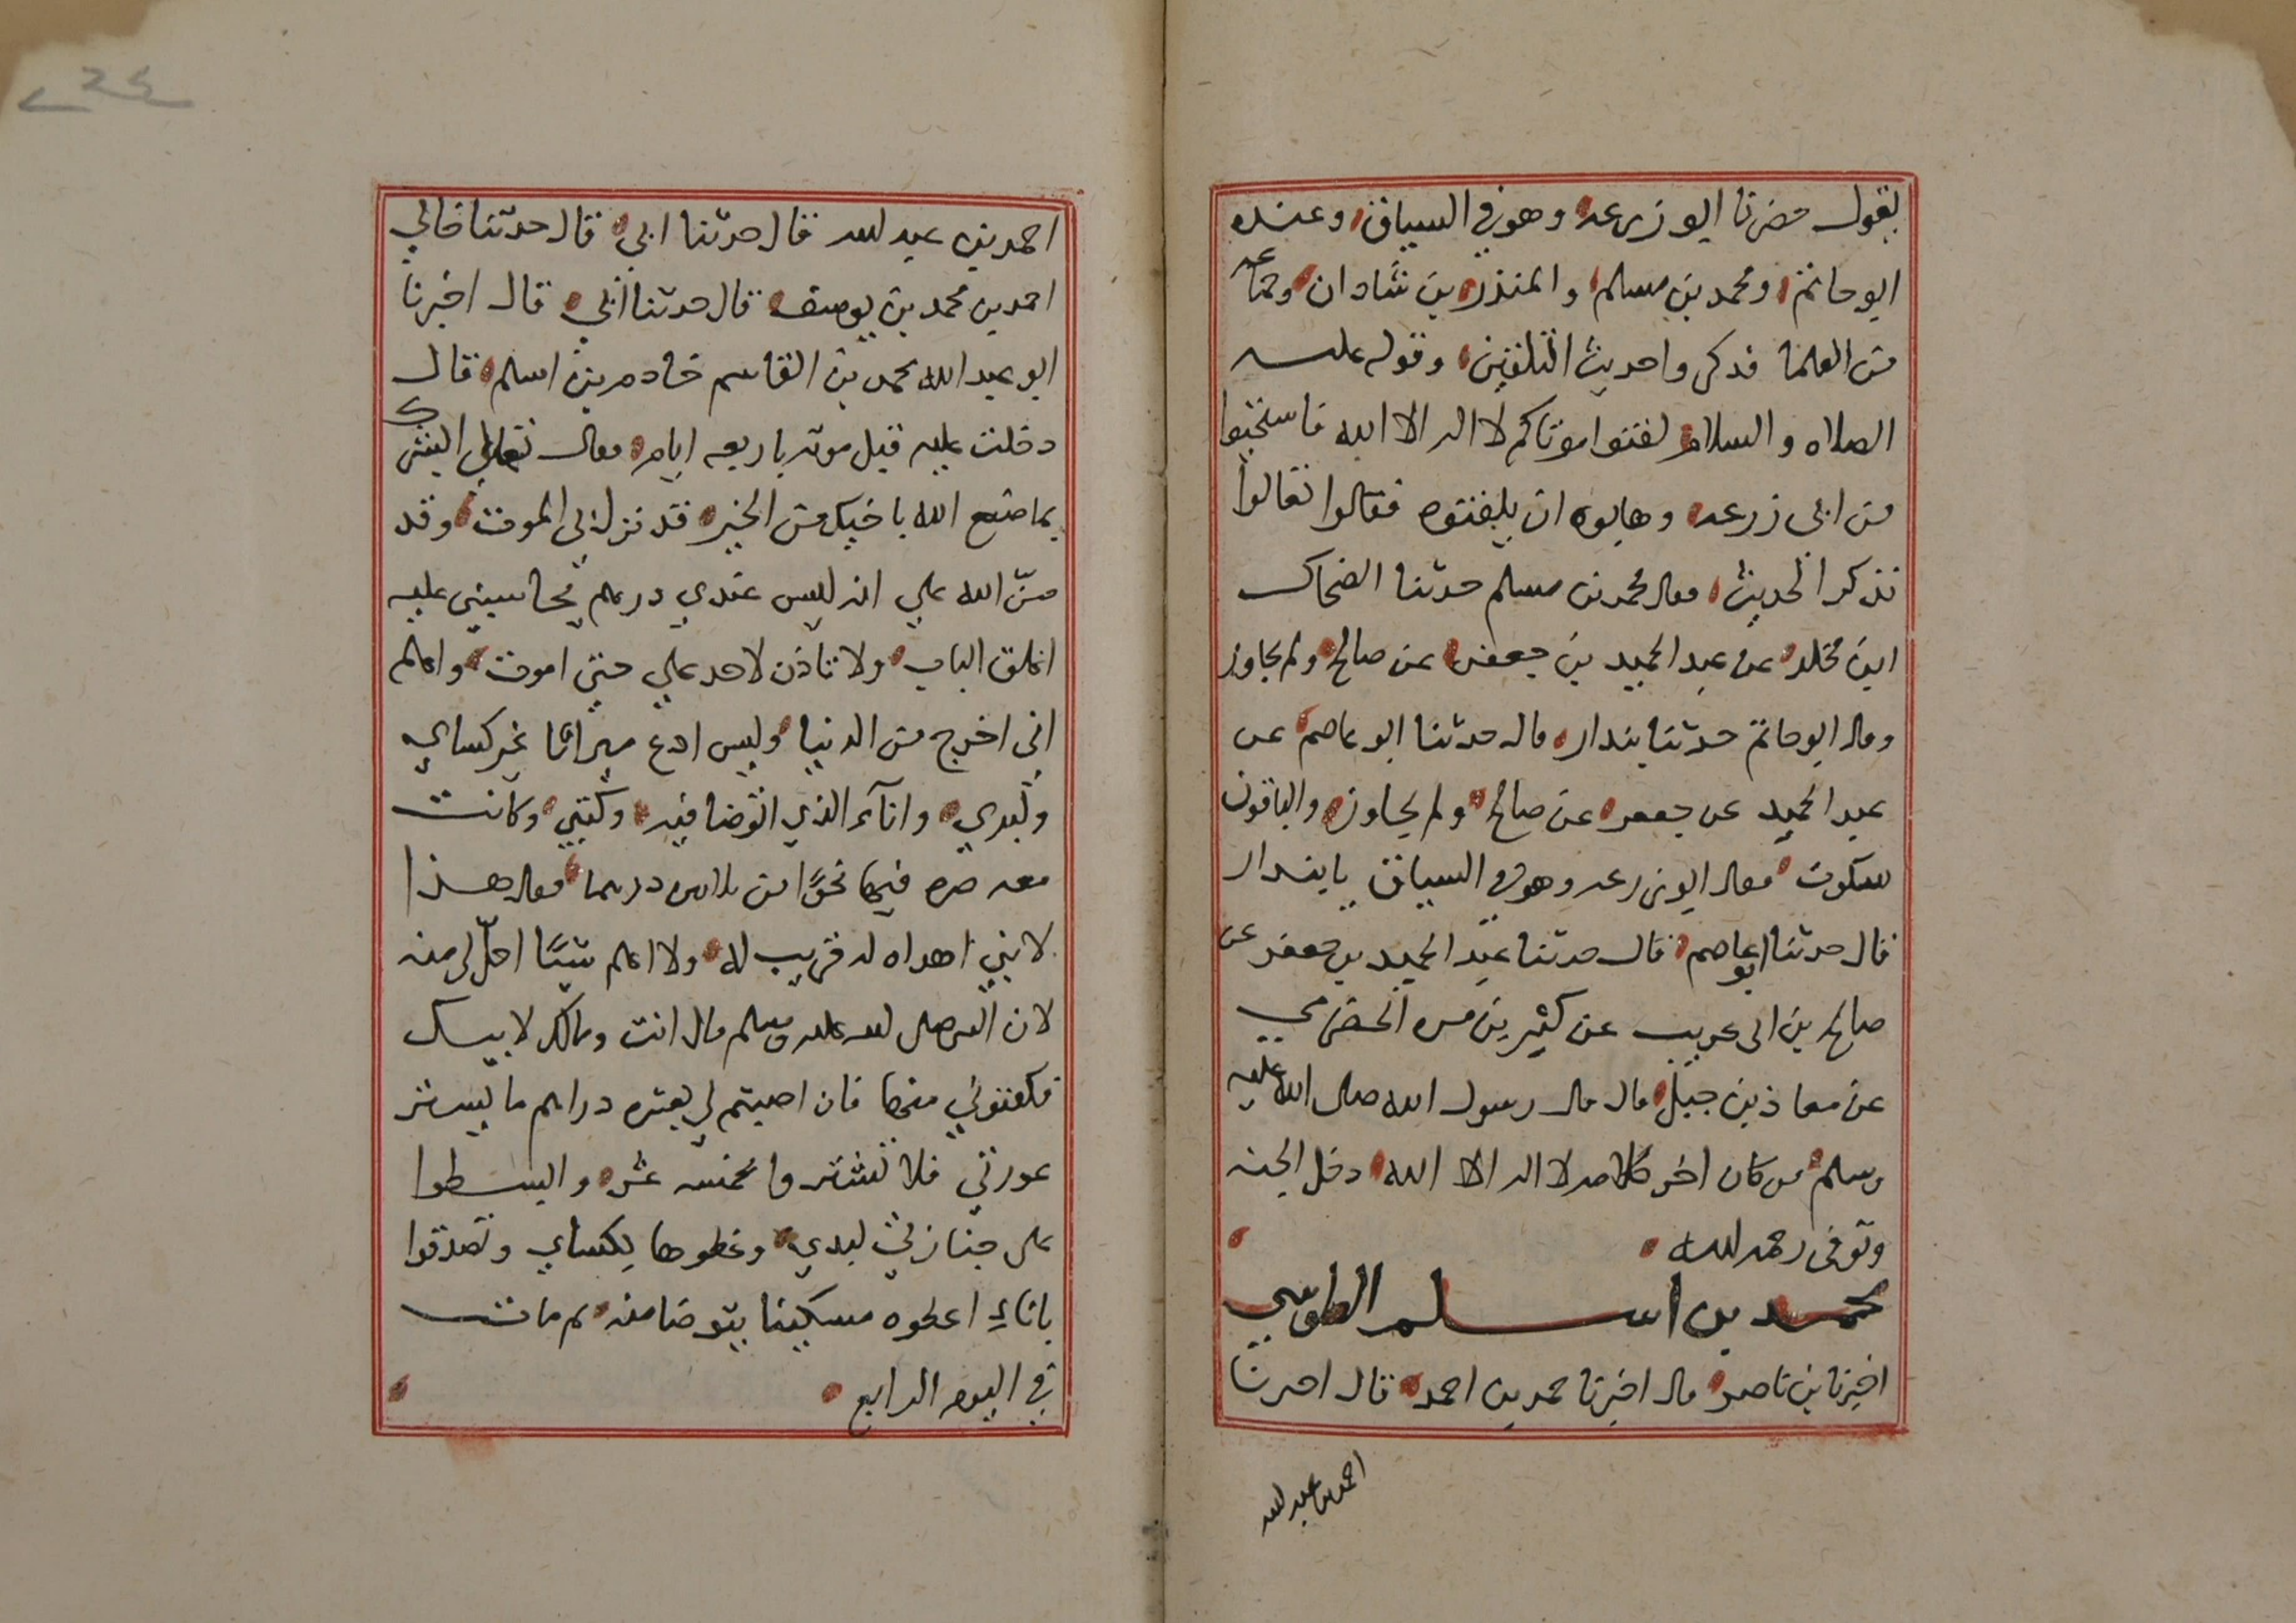 يقول حضرنا ابو زرعه وهو في السياق وعنده
ابو حاتم ومحمد بن مسلم والمنذر بن شادان وجماعه
من العلما فذكروا حديث التلقين وقوله عليه
الصلاه والسلام لقنوا موتاكم لا اله الا الله فاستحيوا
من ابى زرعه وهابوه ان يلقنوه فقالوا تعالوا
نذكر الحديث فقال محمد بن مسلم حدثنا الضحاك
ابن مخلد عن عبد الحميد بن جعفر عن صالح ولم يجاوز
وقال ابو حاتم حدثنا بندار قال حدثنا ابو عاصم عن
عبد الحميد عن جعفر عن صالح ولم يجاوز والباقون
سكوت فقال ابو زرعه وهو في السياق بابندار
قال حدثنا ابو عاصم قال حدثنا عبد الحميد بن جعفر عن
صالح بن ابى عريب عن كثير بن مره الحضرمي
عن معاذ بن جبل قال قال رسول الله صلى الله عليه
وسلم من كان اخر كلامه لا اله الا الله دخل الجنه
وتوفى رحمه الله
محمد بن اسلم الطوسي
اخبرنا بن ناصر قال اخبرنا حمد بن احمد قال اخبرنا
احمد بن عبد الله
احمد بن عبد الله قال حدثنا ابي قال حدثنا خالي
احمد بن محمد بن يوسف قال حدثنا ابي قال اخبرنا
ابو عبد الله محمد بن القاسم خادم بن اسلم قال
دخلت عليه قبل موته باربعه ايام فقال تعالى ابشرك
بما صنع الله باخيك من الخير قد نزل بي الموت وقد
منّ الله علي انه ليس عندي درهم يحاسبني عليه
اغلق الباب ولا تاذن لاحد علي حتى اموت واعلم
اني اخرج من الدنيا وليس ادع ميراثا غير كساي
ولبدي وانآء الذي اتوضا فيه وكتبي وكانت
معه صره فيها نحوًا من ثلاثين درهما فقال هذا
لابني اهداه له قريب له ولا اعلم شيًا احلّ لى منه
لان النبى صلى الله عليه وسلم قال انت ومالك لابيك
فكفنوني منها فان اصبتم لي بعشره دراهم ما يستر
عورتي فلا تشتروا بخمسه عشر وابسطوا
على جنازتي لبدي وغطوها بكساي وتصدقوا
باناءِ اعطوه مسكينا يتوضا منه ثم مات
في اليوم الرابع